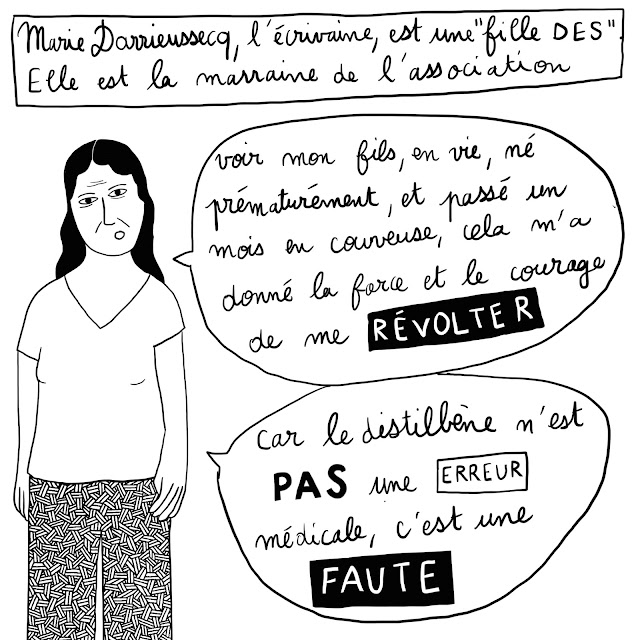 Marie Darrieussecq, l'écrivaine, est une "fille DES".
Elle est la marraine de l'association
voir mon fils, en vie, né
prématurément, et passé un
mois en couveuse, cela m'a
donné la force et le courage
de me RÉVOLTER
car le distilbène n'est
PAS une ERREUR
médicale, c'est une
FAUTE